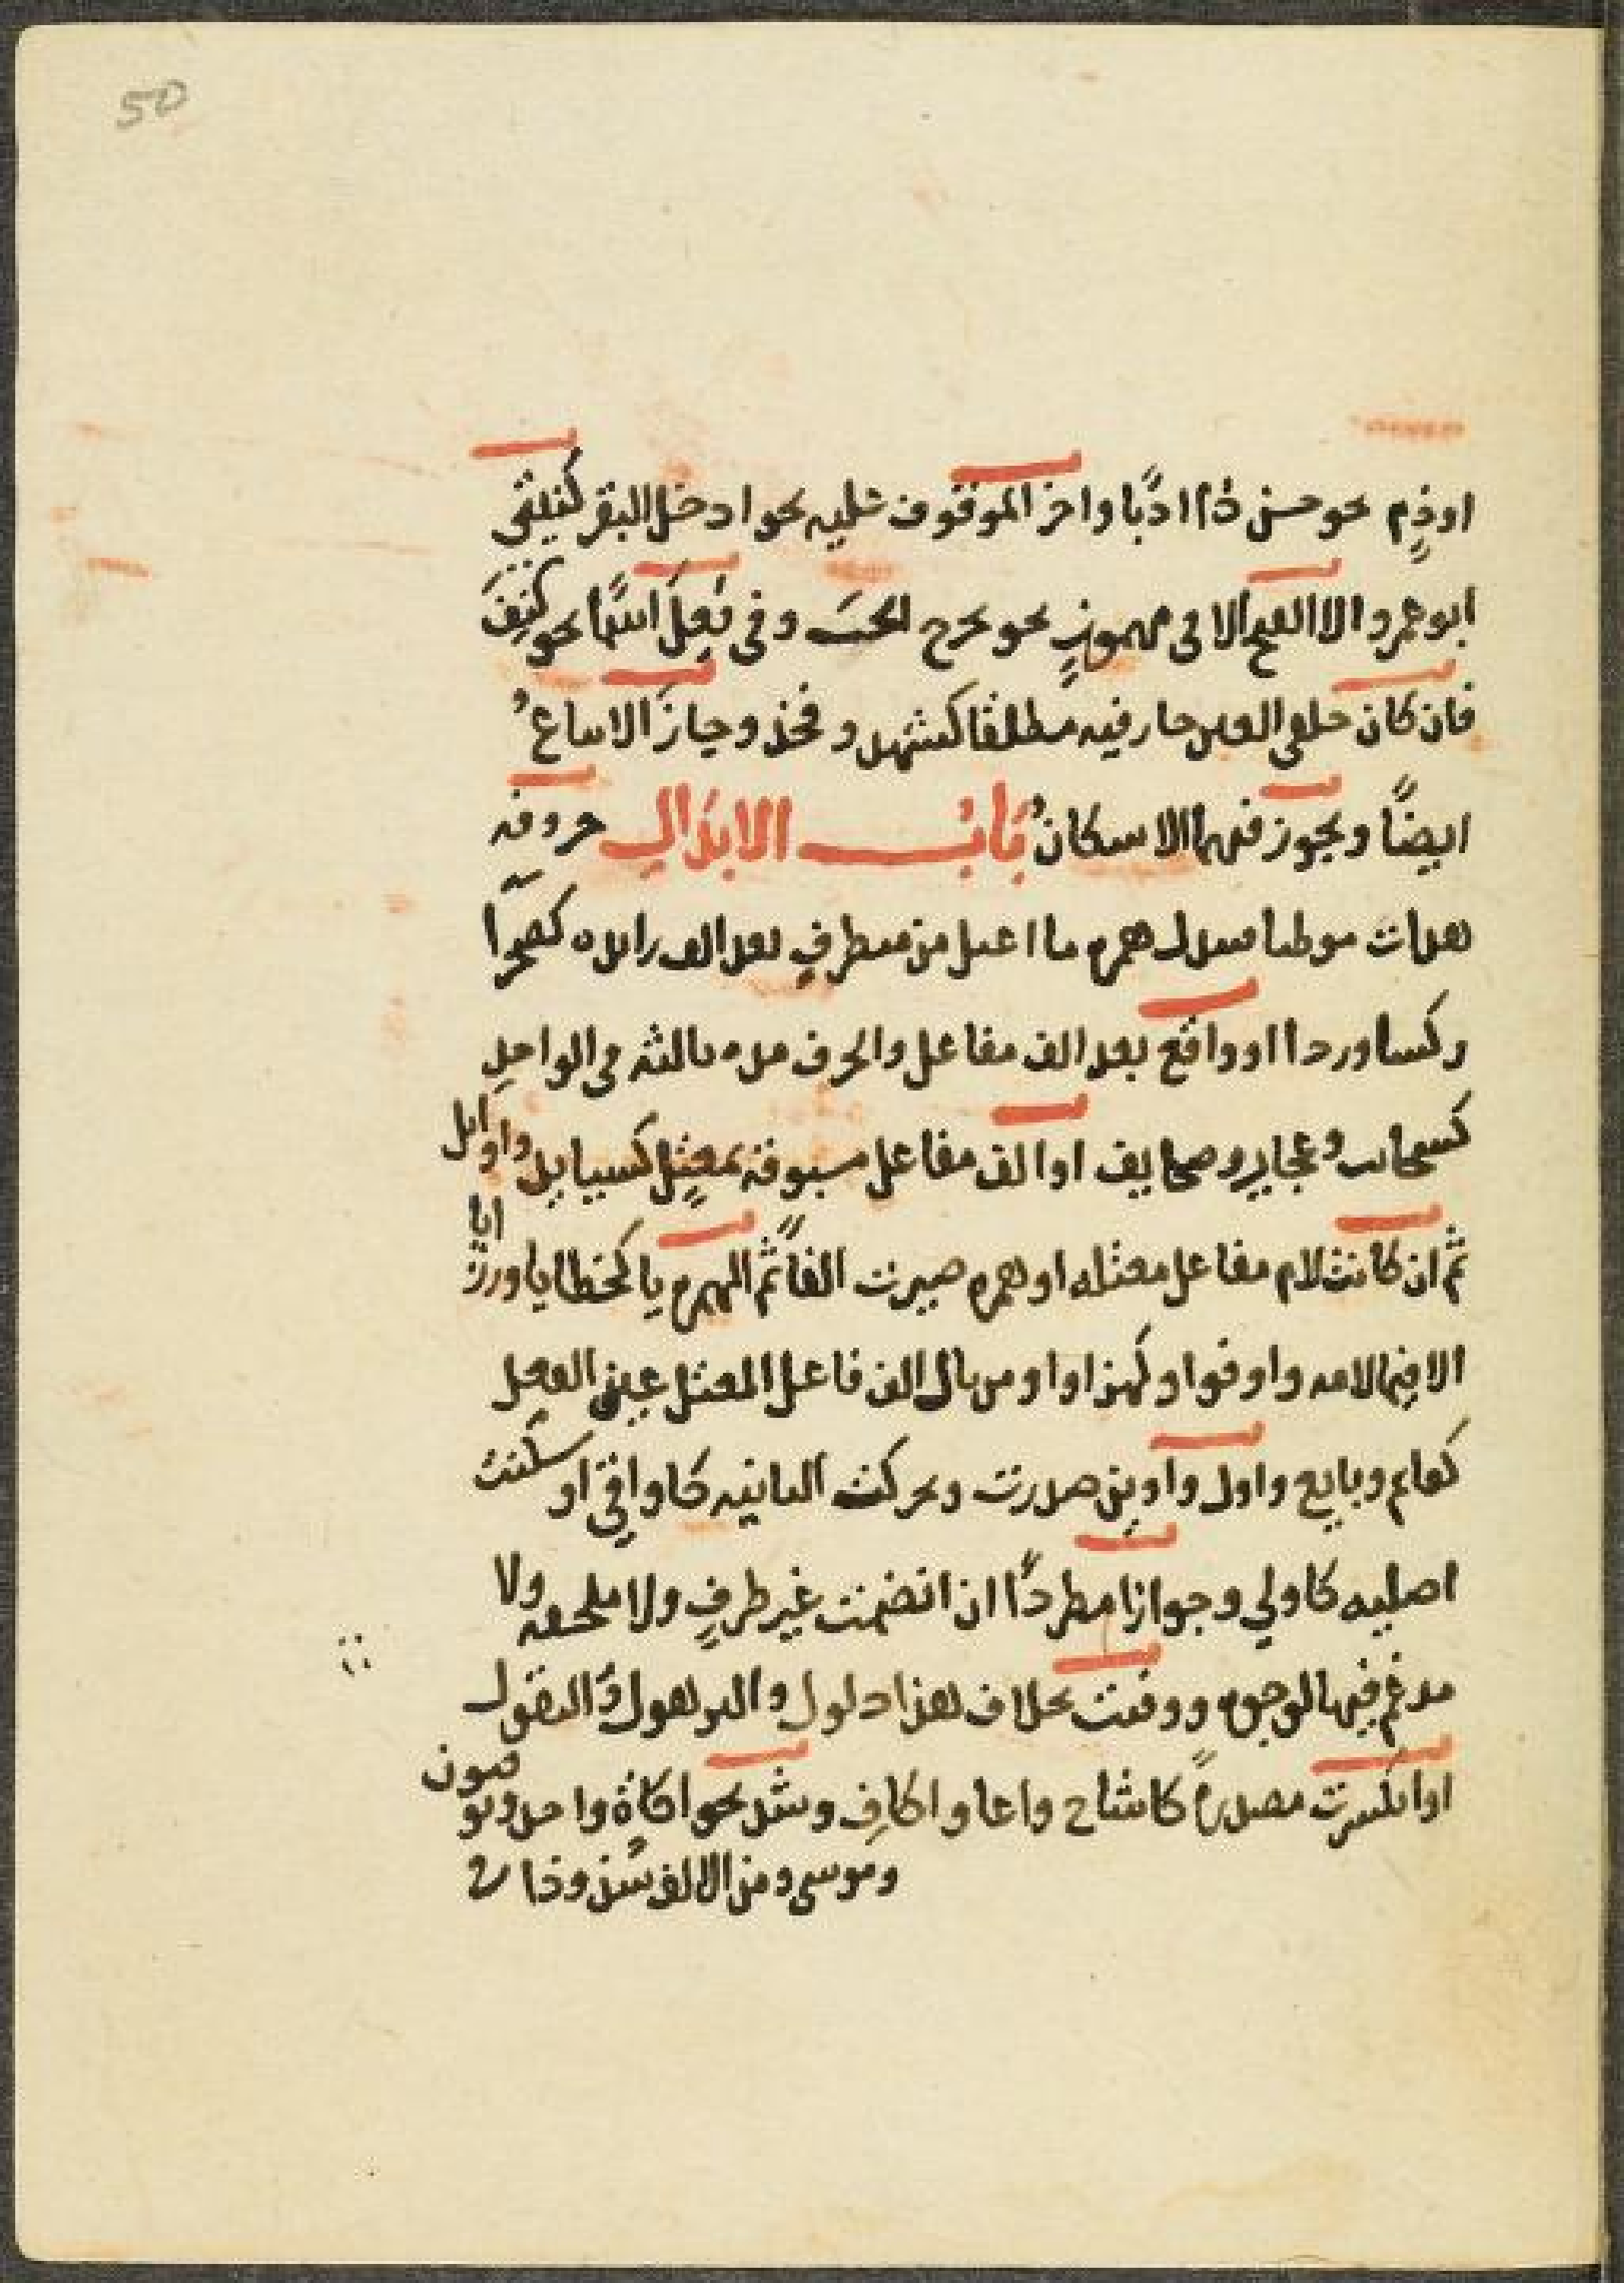 50
او ذم نحو حسن ذا ادبا واخر الموقوف عليه نحو ادخل البقر كنيتى
ابو عمرو الا الفتح الا فى مهموز نحو يخرج الخب وفى فعل اسما نحو كتف
فان كان حلقى العين جاز فيه مطلقا كشهد وفخذ وجاز الاتباع
ايضًا ويجوز فيهما الاسكان باب الابدال حروفه
هدات موطيا تبدل همزه ما اعتل من متطرف بعد الف زايده كصحرآ
وكسا وردا او واقع بعد الف مفاعل والحرف مده ثالثه فى الواحد
كسحايب وعجايز وصحايف او الف مفاعل مسبوقه بمعتل كسيايل واوايل
ثم ان كانت لام مفاعل معتله او همزه صيرت الفًا ثم الهمزه يا كخطايا ورزايا
الا فيما لامه واو فواو كهراوا ومن تالى الف فاعل المعتل عين الفعل
كقايم وبايع واول واوين صدرت وحركت الثانيه كاواقى او سكنت
اصليه كاولي وجوازا مطردًا ان انضمت غير طرف ولا ملحقه ولا
مدغم فيها لوجوه ووقتت بخلاف هذا دلول والترهوك والتقول
او انكسرت مصدرة كاشاح واعا واكاف وشذ نحو اكاة واحد ويوقنون
وموسى ومن الالف شذوذا